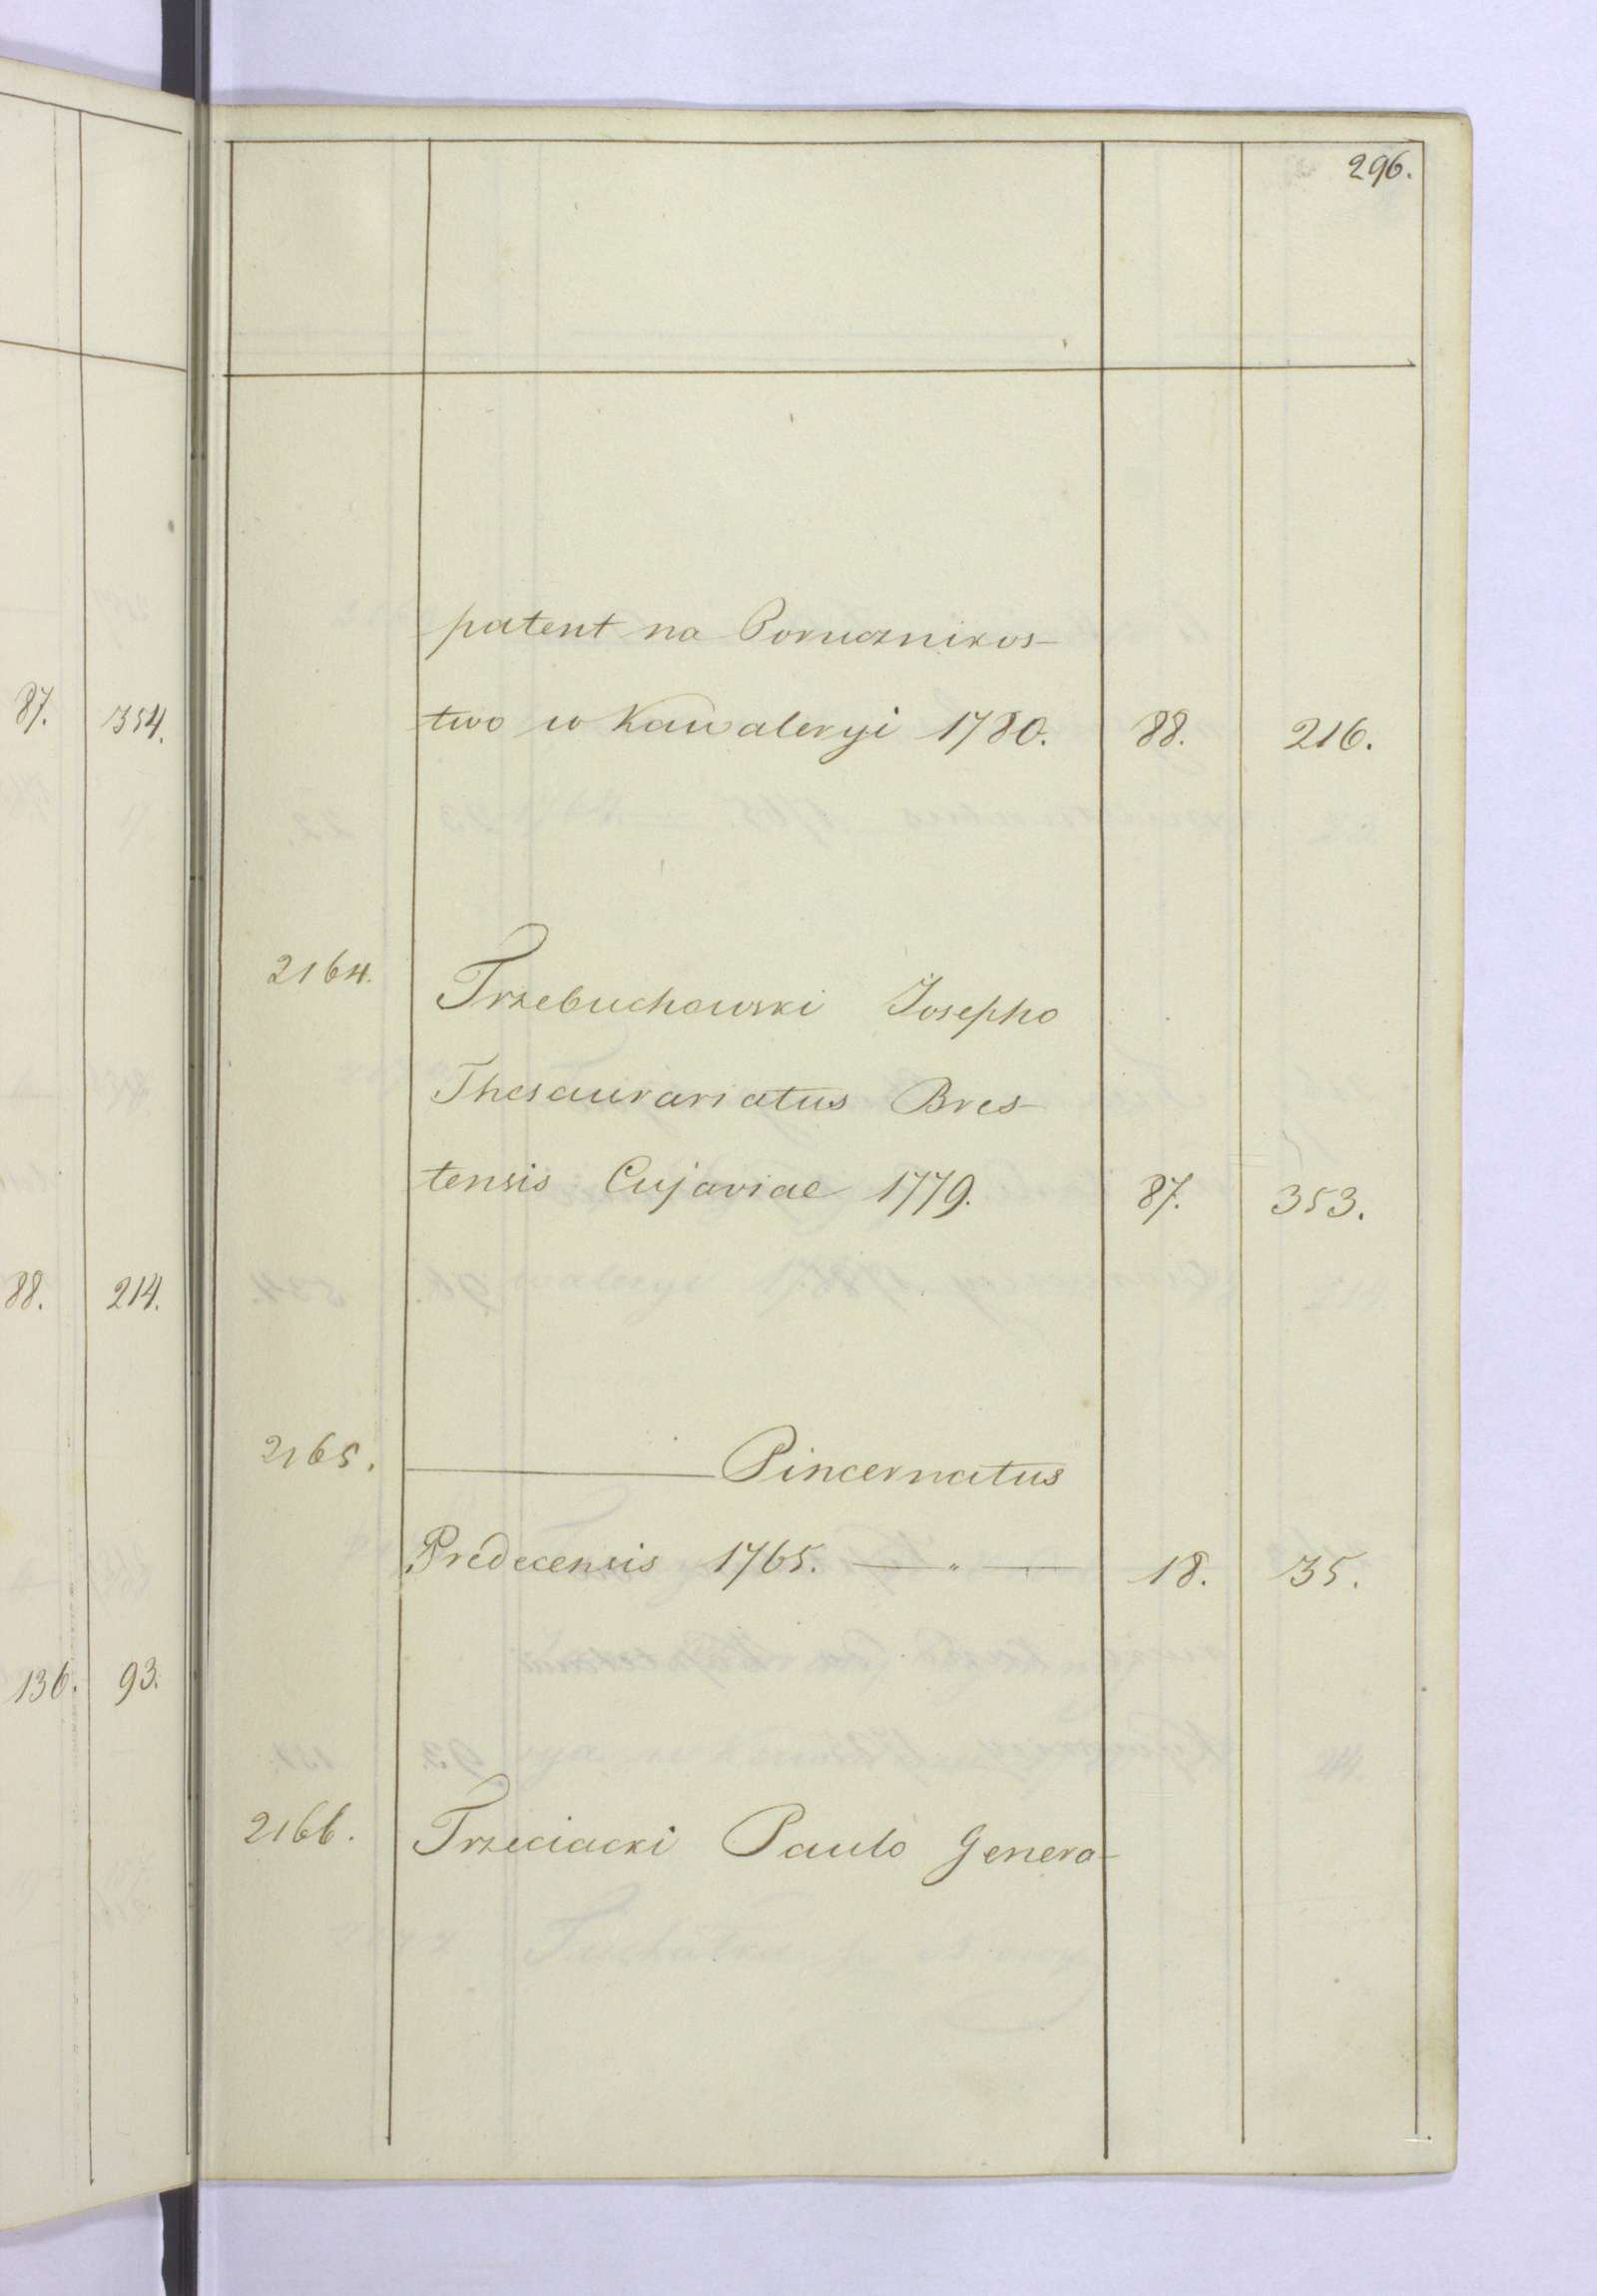 296.
87. 354.
88. 214.
136. 93.
patent na Porucznikos-
two w Kawaleryi 1780. 88. 216.
2164. Trzebuchowski Josepho
Thesaurariatus Bres-
tensis Cujaviae 1779. 87. 353.
2165. ——— Pincernatus
Predecensis 1765. — „ — 18. 35.
2166. Trzeciacki Paulo Genera-